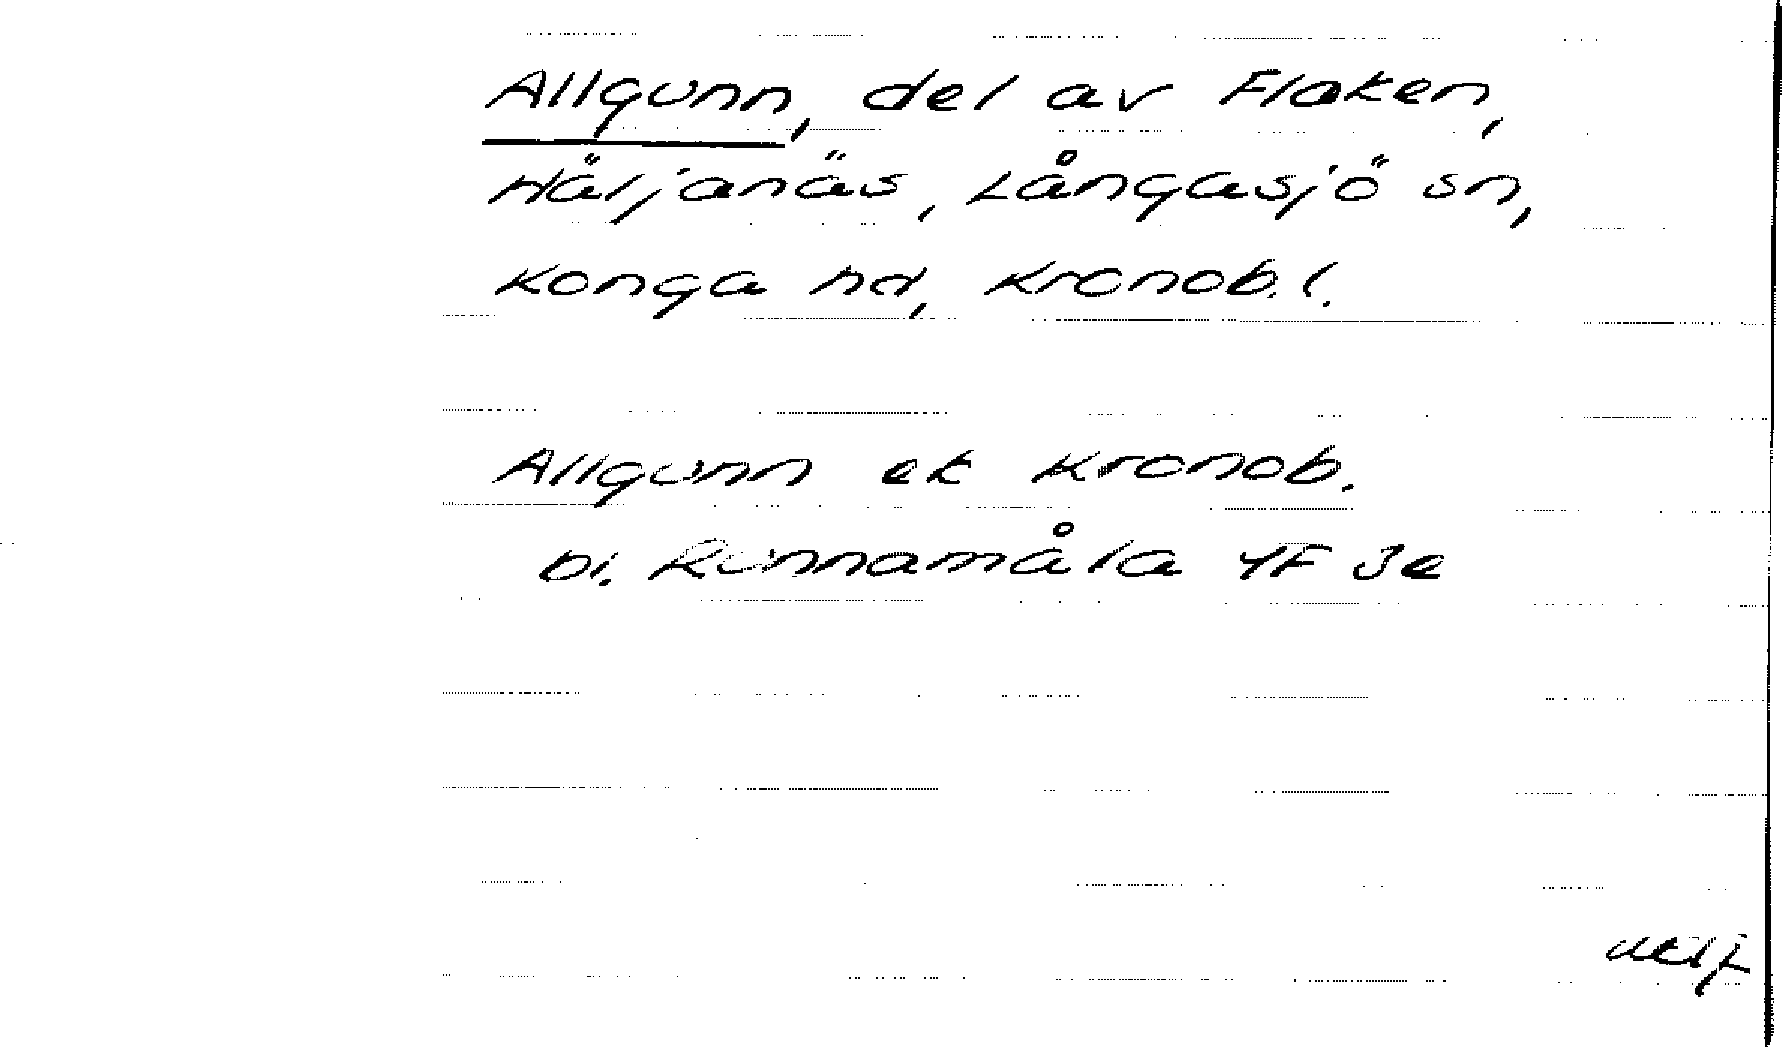 Allgunn, del av Flaken,
Häljanäs, Långasjö sn,
Konga hd, Kronob. l.
Allgunn ek Kronob.
bl. Runnamåla 4F 3e